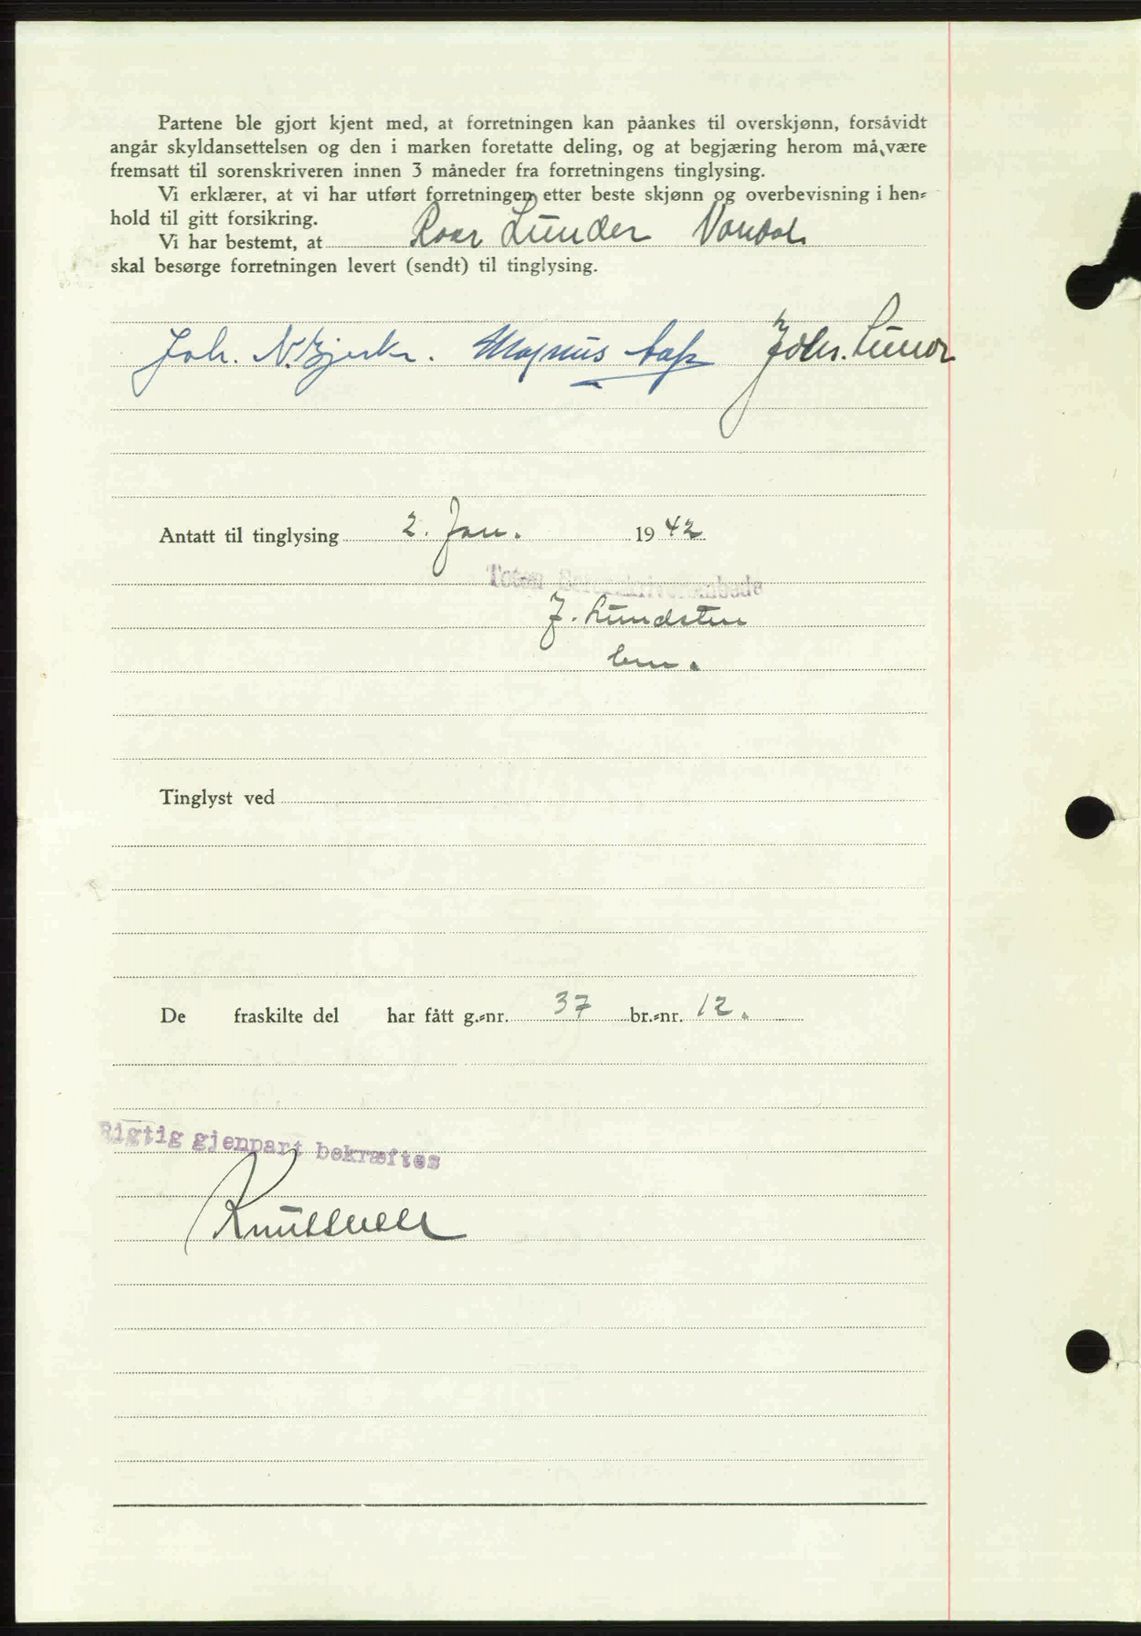 Partene ble gjort kjent med, at forretningen kan påankes til overskjønn, forsåvidt
angår skyldansettelsen og den i marken foretatte deling, og at begjæring herom må være
fremsatt til sorenskriveren innen 3 måneder fra forretningens tinglysing.
Vi erklærer, at vi har utført forretningen etter beste skjønn og overbevisning i hen-
hold til gitt forsikring.
Vi har bestemt, at Roar Lunder
skal besørge forretningen levert (sendt) til tinglysing.
Joh. N. Bjerke. Magnus Johs. Lund
Antatt til tinglysing 2. Jan. 1942
Toten Sorenskriverembede
J. Lundsten
Tinglyst ved
De fraskilte del har fått g.-nr. 37 br.-nr. 12.
Rigtig gjenpart bekræftes